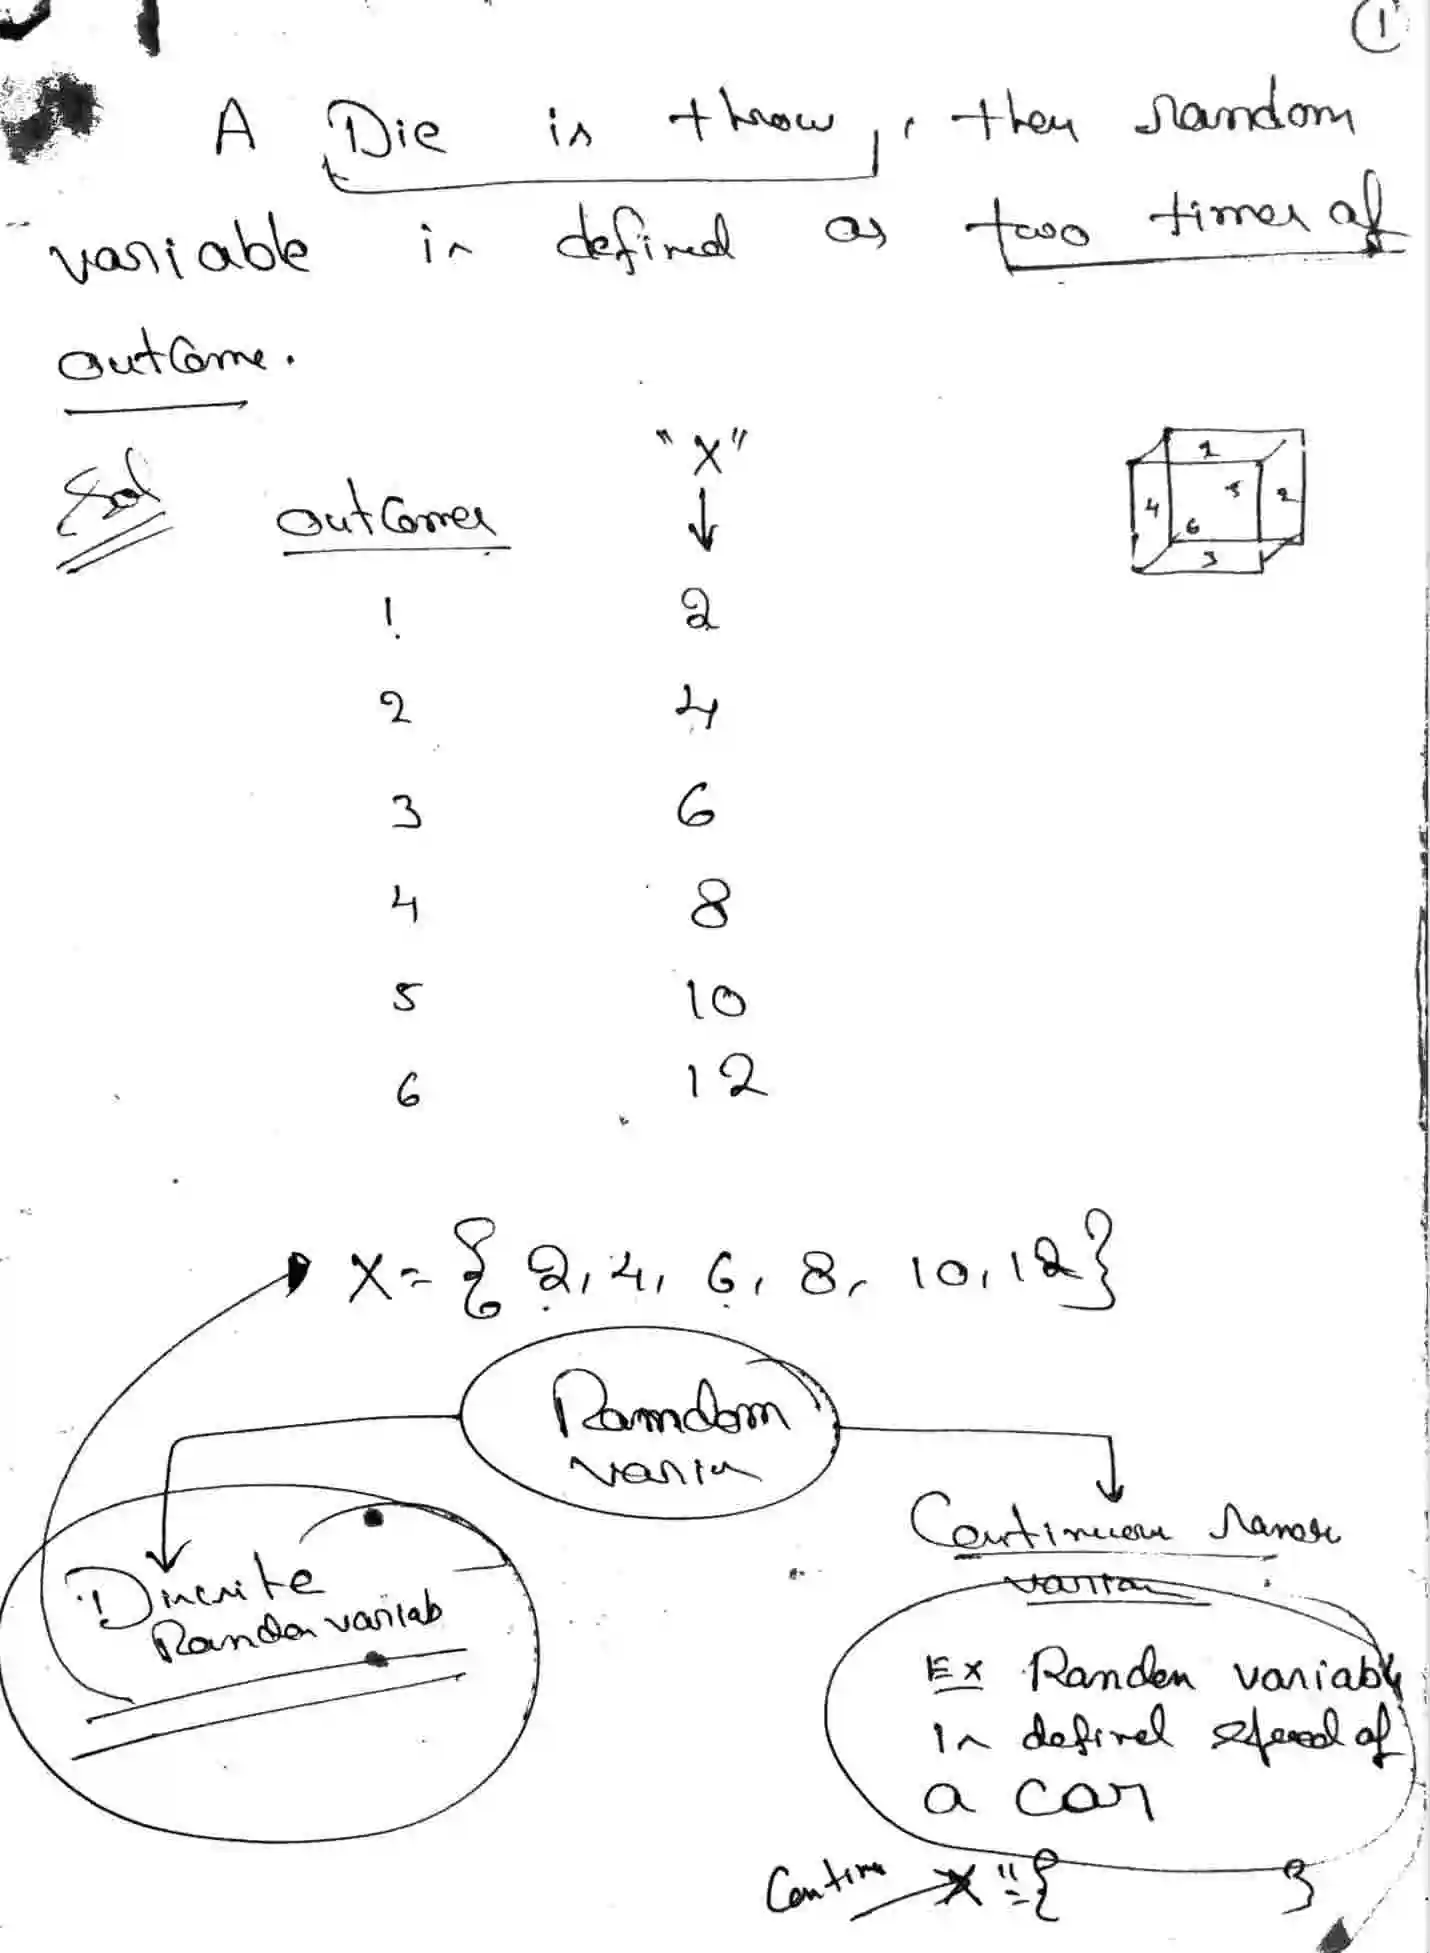 1
A Die is throw, then random
variable is defined as two times of
outcome.
Sol
outcomes
"X"
1
2
2
4
3
6
4
8
5
10
6
12
1
4
5
2
6
3
X = { 2, 4, 6, 8, 10, 12}
Random
Discrite
Random variab
Continuous
Ex Random variable
is defined speed of
a car
X = { }